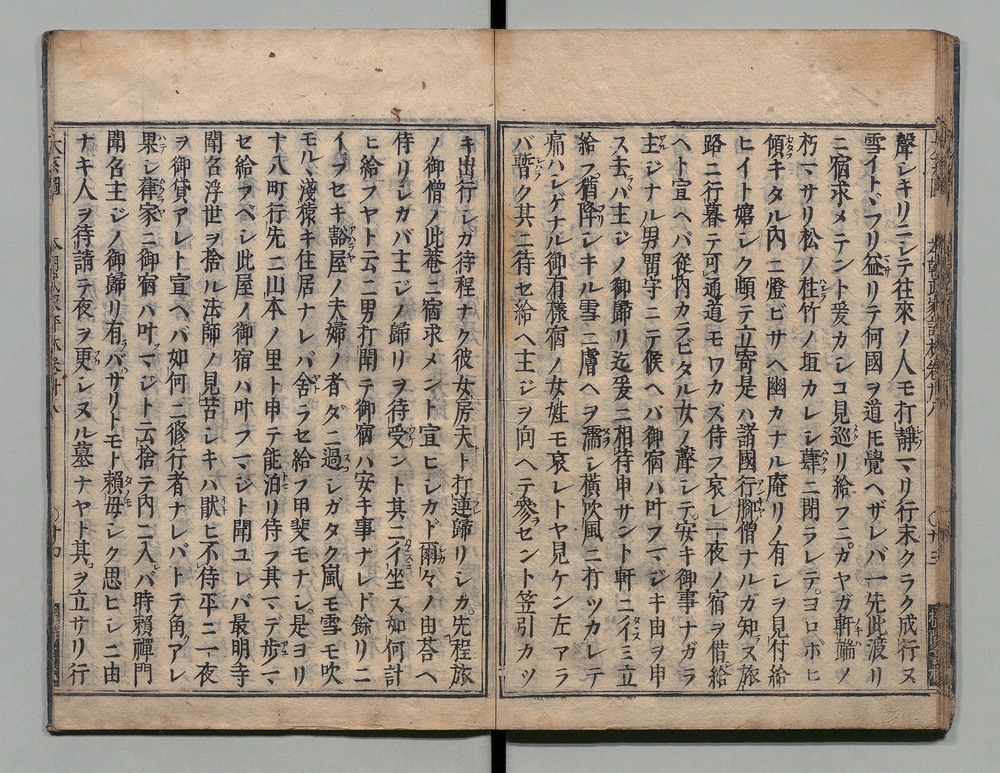 聲シキリニシテ往來ノ人モ打靜マリ行末クラク成行ヌ
雪イトヾフリ益リテ何國ヲ道トモ覺ヘザレバ一先此渡リ
ニ宿求メテント爰カシコ見巡リ給フニガヤガ軒端ノ
朽マサリ松ノ柱竹ノ垣カレシ葎ニ閉ラレテヨロボヒ
傾キタル内ニ燈ビサヘ幽カナル庵リノ有シヲ見付給
ヒイト嬉シク頓テ立寄是ハ諸國行脚僧ナルガ知ヌ旅
路ニ行暮テ可通道モワカズ侍フ哀レ一夜ノ宿ヲ借給
ヘト宣ヘバ從内カラビタル女ノ聲シテ安キ御事ナガラ
主ジナル男留守ニテ候ヘバ御宿ハ叶フマジキ由ヲ申
ス去バ主ジノ御歸リ迄爰ニ相待申サント軒ニイミ立
給フ猶降シキル雪ニ膚ヘヲ濡シ横吹風ニ打ツカレテ
痛ハシゲナル御有樣宿ノ女姓モ哀レトヤ見ケン左アラ
バ暫ク其ニ待セ給ヘ主ジヲ向ヘテ參セント笠引カツ
キ出行シガ待程ナク彼女房夫ト打連歸リシカ先程旅
ノ御僧ノ此菴ニ宿求メント宣ヒシカド爾々ノ由荅ヘ
侍リシガバ主ジノ歸リヲ待受ント其ニイ坐ス如何計
ヒ給フヤト云ニ男打聞テ御宿ハ安キ事ナレド餘リニ
イブセキ豁屋ノ夫婦ノ者ダニ過シガタク嵐モ雪モ吹
モル淺猿キ住居ナレバ舍ラセ給フ甲斐モナシ是ヨリ
十八町行先ニ山本ノ里ト申テ能泊リ侍フ其マデ歩マ
セ給フベシ此屋ノ御宿ハ叶フマジト聞ユレバ最明寺
聞名浮世ヲ捨ル法師ノ見苦シキハ猒ヒ不侍平ニ一夜
ヲ御貸アレト宣ヘバ如何ニ修行者ナレバトテ角アレ
果シ葎家ニ御宿ハ叶フマジト云捨テ内ニ入バ時賴禪門
聞名主ジノ御歸リ有バサリトモト賴母シク思ヒシニ由
ナキ人ヲ待請テ夜ヲ更シヌル墓ナヤト其ヲ立サリ行